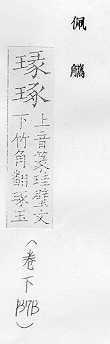 佩觿
瑑琢
上音篆珪璧文
下竹角翻琢玉
(卷下 P37B)